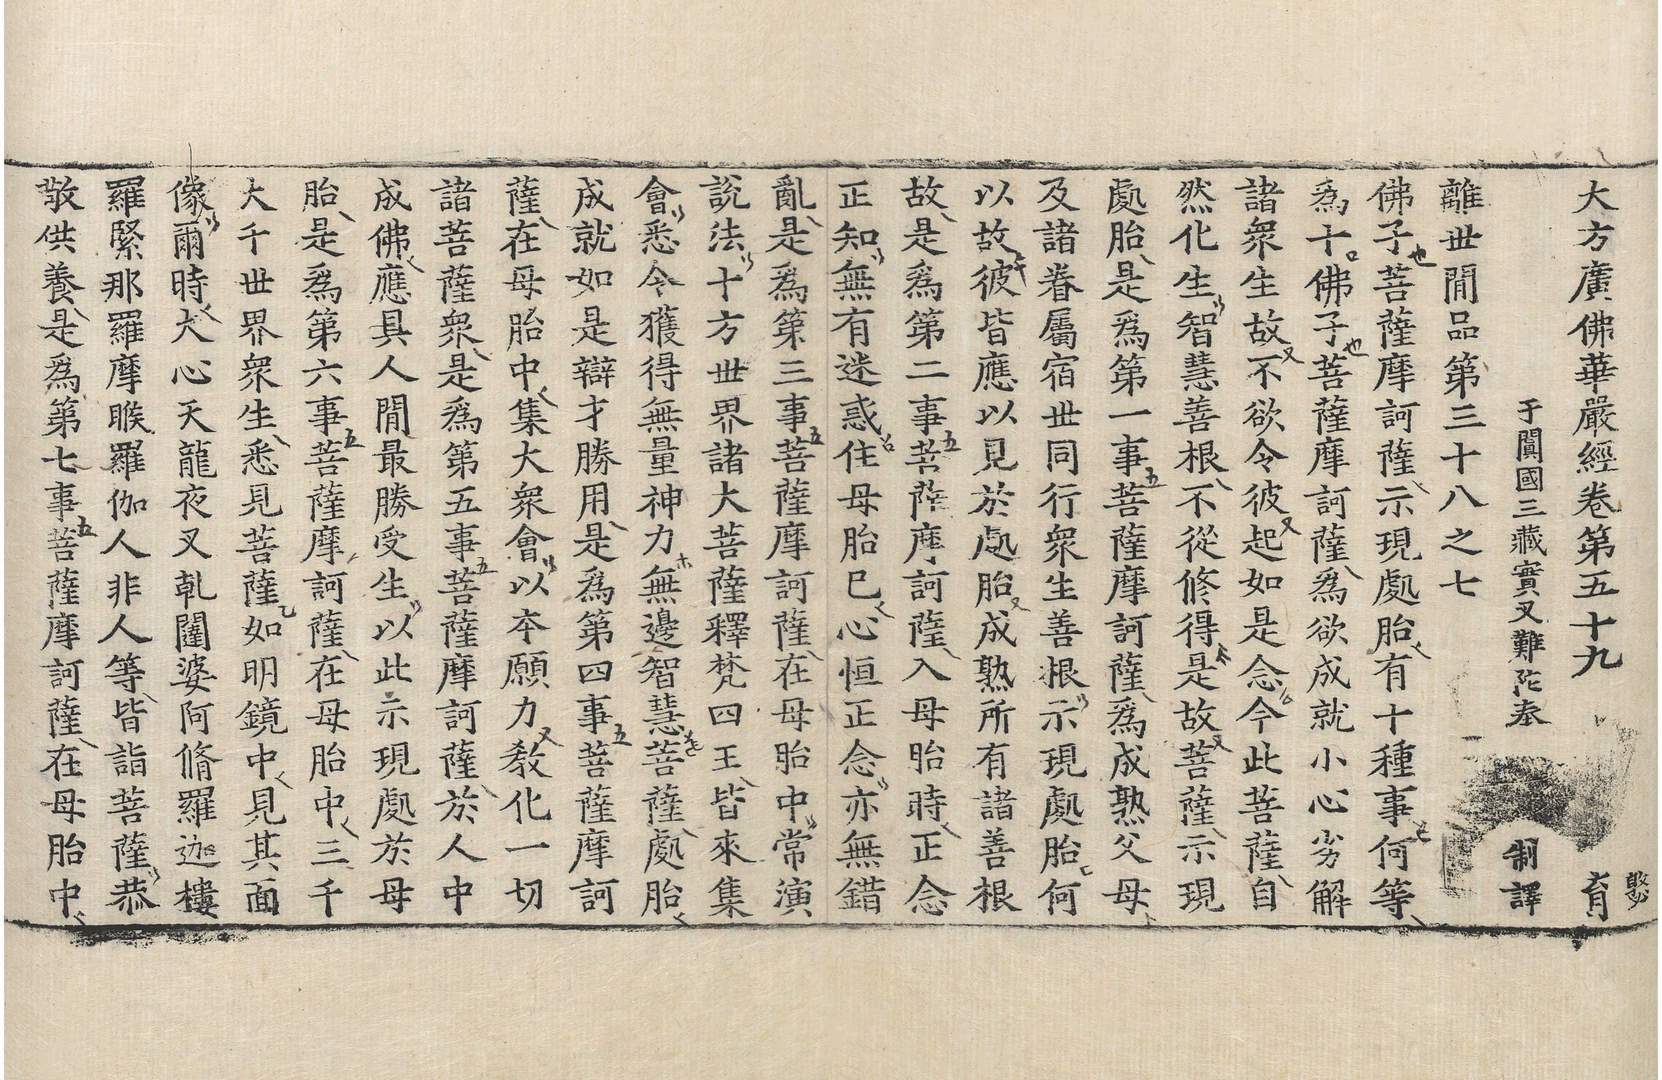 大方廣佛華嚴經卷第五十九 育
于闐國三藏實叉難陀奉 制譯
離世間品第三十八之七
佛子菩薩摩訶薩示現處胎有十種事何等
爲十佛子菩薩摩訶薩爲欲成就小心劣解
諸衆生故不欲令彼起如是念今此菩薩自
然化生智慧善根不從修得是故菩薩示現
處胎是爲第一事菩薩摩訶薩爲成熟父母
及諸眷屬宿世同行衆生善根示現處胎何
以故彼皆應以見於處胎成熟所有諸善根
故是爲第二事菩薩摩訶薩入母胎時正念
正知無有迷惑住母胎已心恒正念亦無錯
亂是爲第三事菩薩摩訶薩在母胎中常演
說法十方世界諸大菩薩釋梵四王皆來集
會悉令獲得無量神力無邊智慧菩薩處胎
成就如是辯才勝用是爲第四事菩薩摩訶
薩在母胎中集大衆會以本願力教化一切
諸菩薩衆是爲第五事菩薩摩訶薩於人中
成佛應具人間最勝受生以此示現處於母
胎是爲第六事菩薩摩訶薩在母胎中三千
大千世界衆生悉見菩薩如明鏡中見其面
像爾時大心天龍夜叉乹闥婆阿脩羅迦樓
羅緊那羅摩睺羅伽人非人等皆詣菩薩恭
敬供養是爲第七事菩薩摩訶薩在母胎中